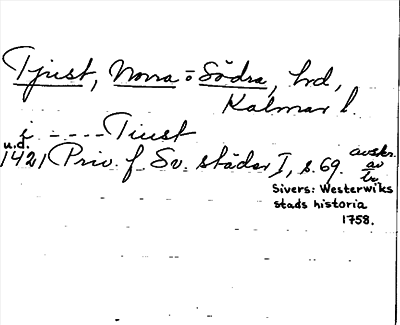 Tjust, Norra o Södra, hrd,
Kalmar l.
i ---- Tiust
u.d.
1421 Priv. f Sv. städer I, s. 69. avskr. av
tr.
Sivers: Westerwiks
stads historia
1758.